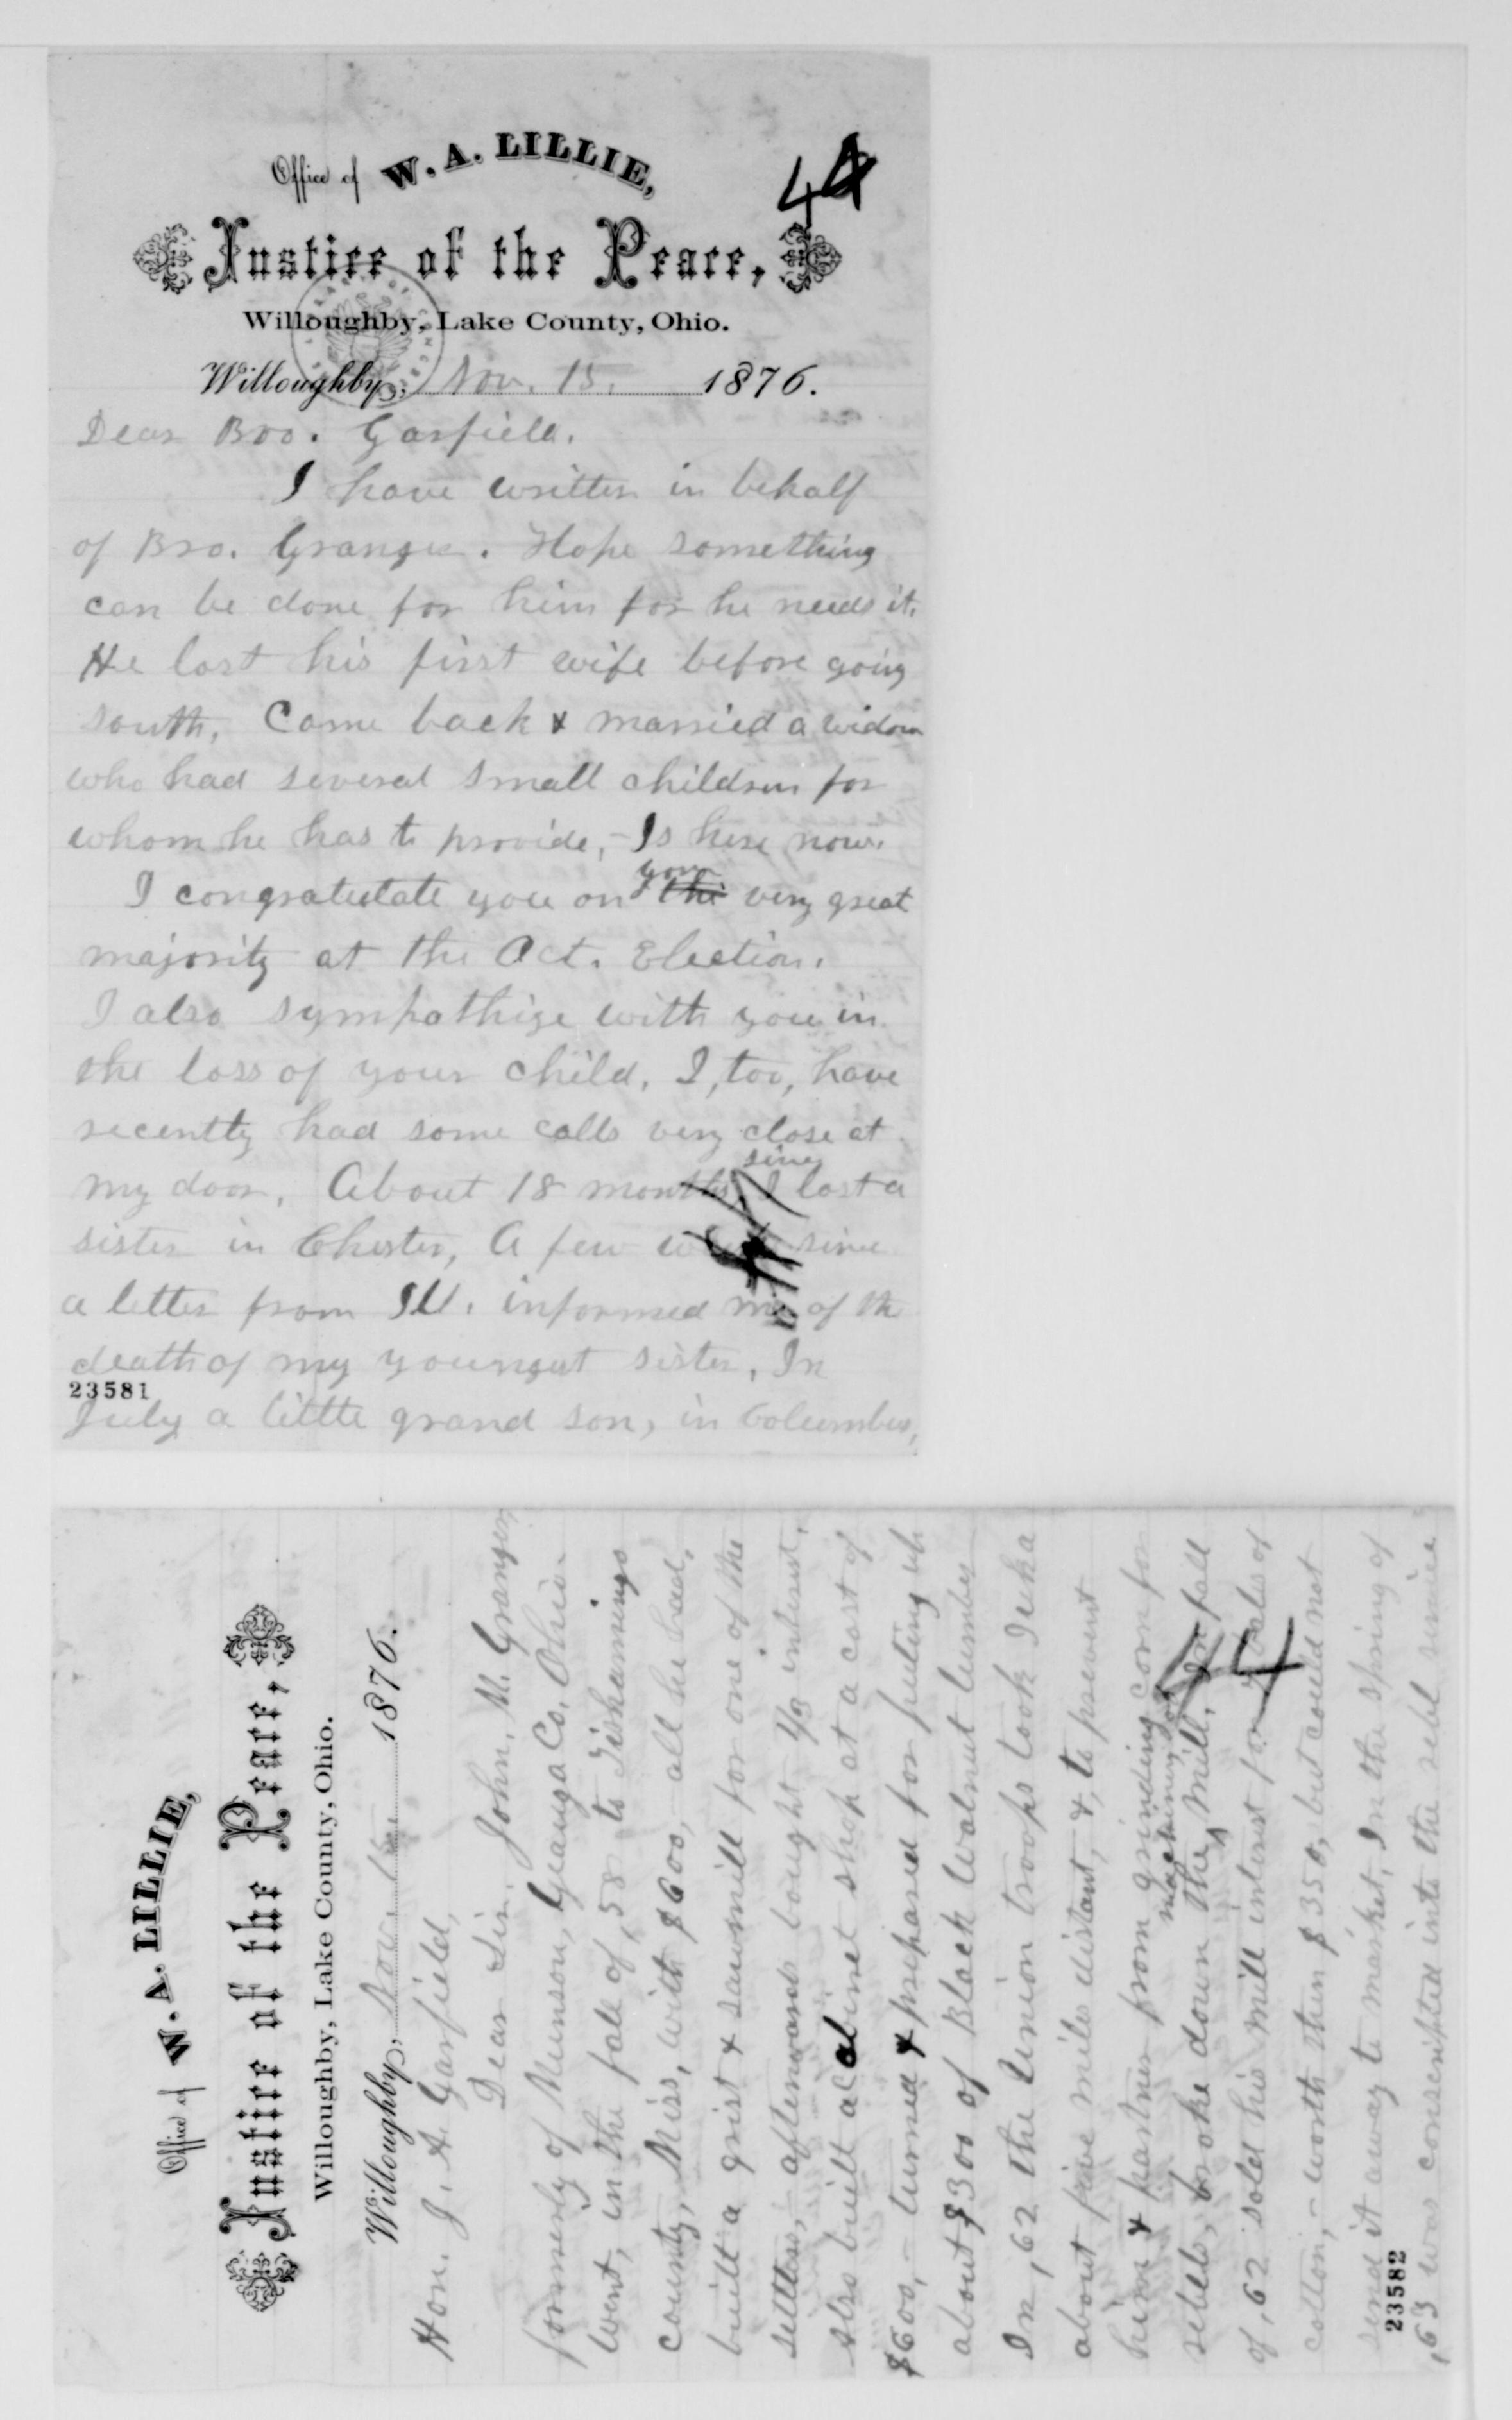 44
Office of W. A. LILLIE,
Justice of the Peace,
Willoughby, Lake County, Ohio.
Willoughby, Nov. 15. 1876.
Dear Bro. Garfield.
I have written in behalf
of Bro. Granger. Hope something
can be done for him for he needs it.
He lost his first wife before going
south, Came back & married a widow
who had several small children for
whom he has to provide, - Is here now.
I congratulate you on your the very great
majority at the Oct. Election.
I also sympathize with you in
the loss of your child. I, too, have
recently had some calls very close at
my door. About 18 months since I lost a
sister in Chester, A few weeks since
a letter from Ill. informed me of the
death of my youngest sister. In
23581
July a little grand son, in Columbus,
Office of W. A. LILLIE,
Justice of the Peace,
Willoughby, Lake County, Ohio.
Willoughby, Nov. 15. 1876.
Hon. J. A. Garfield,
Dear Sir, John. M. Granger,
formerly of Munson, Geauga Co. Ohio
went, in the fall of ,58 to Tishamingo
county, Miss, with $600, all he had,
built a grist & sawmill for one of the
settlers, - afterwards bought 1/3 interest,
also built a cabinet shop at a cost of
$600, - turned & prepared for putting up
about $300 of Black Walnut lumber
In ,62 the Union troops took Iuka
about five miles distant, &, to prevent
him & partner from grinding corn for
rebels, broke down the machinery of mill. In fall
of ,62 sold his mill interest for bales of
cotton, - worth then $350, but could not
send it away to market, In the spring of
,63 was conscripted into the rebel service
23582
44